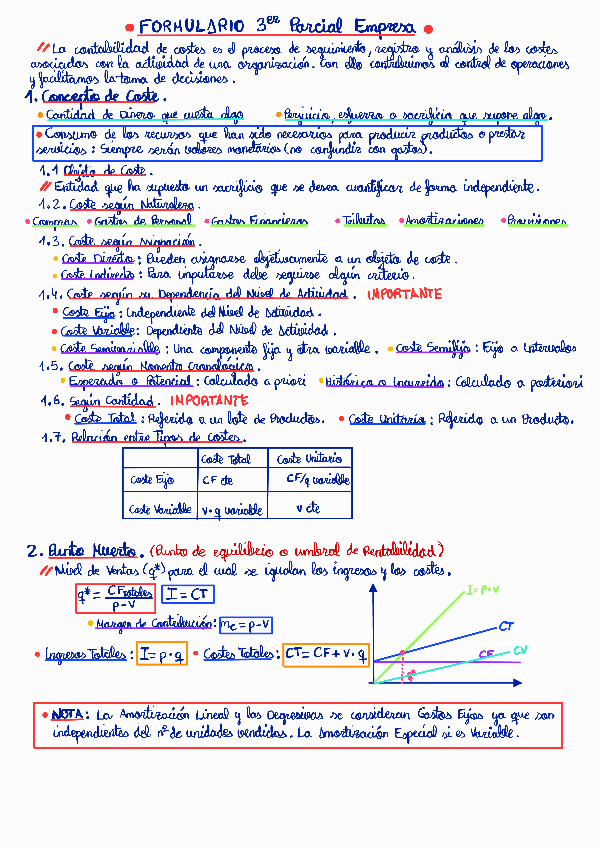 • FORMULARIO 3er Parcial Empresa •
// La contabilidad de costes es el proceso de seguimiento, registro y análisis de los costes
asociados con la actividad de una organización. Con ello contribuimos al control de operaciones
y facilitamos la toma de decisiones.
1. Concepto de Coste.
• Cantidad de Dinero que cuesta algo • Perjuicio, esfuerzo o sacrificio que supone algo.
• Consumo de los recursos que han sido necesarios para producir productos o prestar
servicios: Siempre serán valores monetarios (no confundir con gastos).
1.1 Objeto de Coste.
// Entidad que ha supuesto un sacrificio que se desea cuantificar de forma independiente.
1.2. Coste según Naturaleza.
• Compras • Gastos de Personal • Gastos Financieros • Tributos • Amortizaciones • Provisiones
1.3. Coste según Asignación.
• Coste Directo: Pueden asignarse objetivamente a un objeto de coste.
• Coste Indirecto: Para imputarse debe seguirse algún criterio.
1.4. Coste según su Dependencia del Nivel de Actividad. IMPORTANTE
• Coste Fijo: Independiente del Nivel de Actividad.
• Coste Variable: Dependiente del Nivel de Actividad.
• Coste Semivariable: Una componente fija y otra variable. • Coste Semifijo: Fijo a Intervalos
1.5. Coste según Momento Cronológico.
• Esperado o Potencial: Calculado a priori • Histórico o Incurrido: Calculado a posteriori
1.6. Según Cantidad. IMPORTANTE
• Coste Total: Referido a un lote de Productos. • Coste Unitario: Referido a un Producto.
1.7. Relación entre Tipos de Costes.
Coste Total Coste Unitario
Coste Fijo CF cte CF/q variable
Coste Variable v·q variable v cte
2. Punto Muerto. (Punto de equilibrio o umbral de Rentabilidad)
// Nivel de Ventas (q*) para el cual se igualan los ingresos y los costes.
q* = CFtotales / p-v I = CT
• Margen de Contribución: mc = p-v
• Ingresos Totales: I = p·q • Costes Totales: CT = CF + v·q
I = p·v
CT
CF
CV
q*
• NOTA: La Amortización Lineal y las Degresivas se consideran Gastos Fijos ya que son
independientes del nº de unidades vendidas. La Amortización Especial si es Variable.